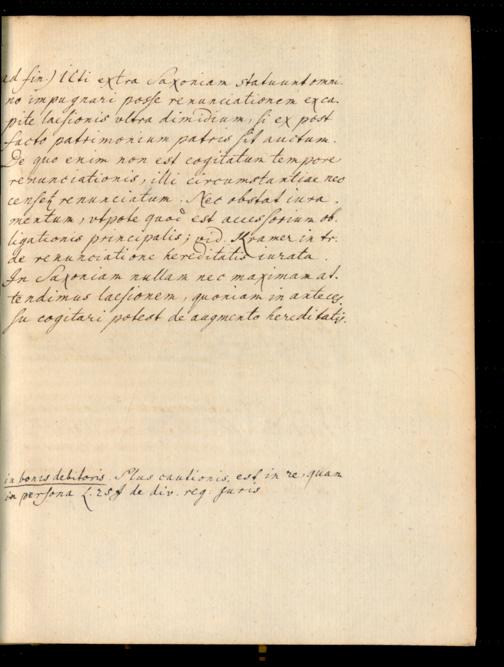 ad fin.) ICti extra Saxoniam statuunt omni-
no impugnari posse renunciationem exca-
pite laesionis ultra dimidium, si ex post
facto patrimonium patris sit auctum.
De quo enim non est cogitatum tempore
renunciationis, illi circumstantiae nec
censetur renunciatum. Nec obstat iura-
mentum, utpote quod est accessorium ob-
ligationis principalis; vid. Kramer in tr.
de renunciatione hereditatis iurata.
In Saxoniam nullam nec maximam at-
tendimus laesionem, quoniam in anteces-
su cogitari potest de augmento hereditatis.
in bonis debitoris. Plus cautionis est in re, quam
in persona L. 25 ff de div. reg. Juris